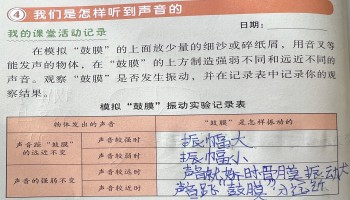 4 我们是怎样听到声音的
我的课堂活动记录 日期:
在模拟“鼓膜”的上面放少量的细沙或碎纸屑,用音叉等
能发声的物体,在“鼓膜”的上方制造强弱不同和远近不同的
声音。观察“鼓膜”是否发生振动,并在记录表中记录你的观
察结果。
模拟“鼓膜”振动实验记录表
物体发出的声音 “鼓膜”是怎样振动的
声音距“鼓膜”的远近不变 声音较强时 振幅大
声音较弱时 振幅小
声音的强弱不变 声音较近时 声音 时 膜 振动大
声音较远时 声音距“鼓膜” 远近